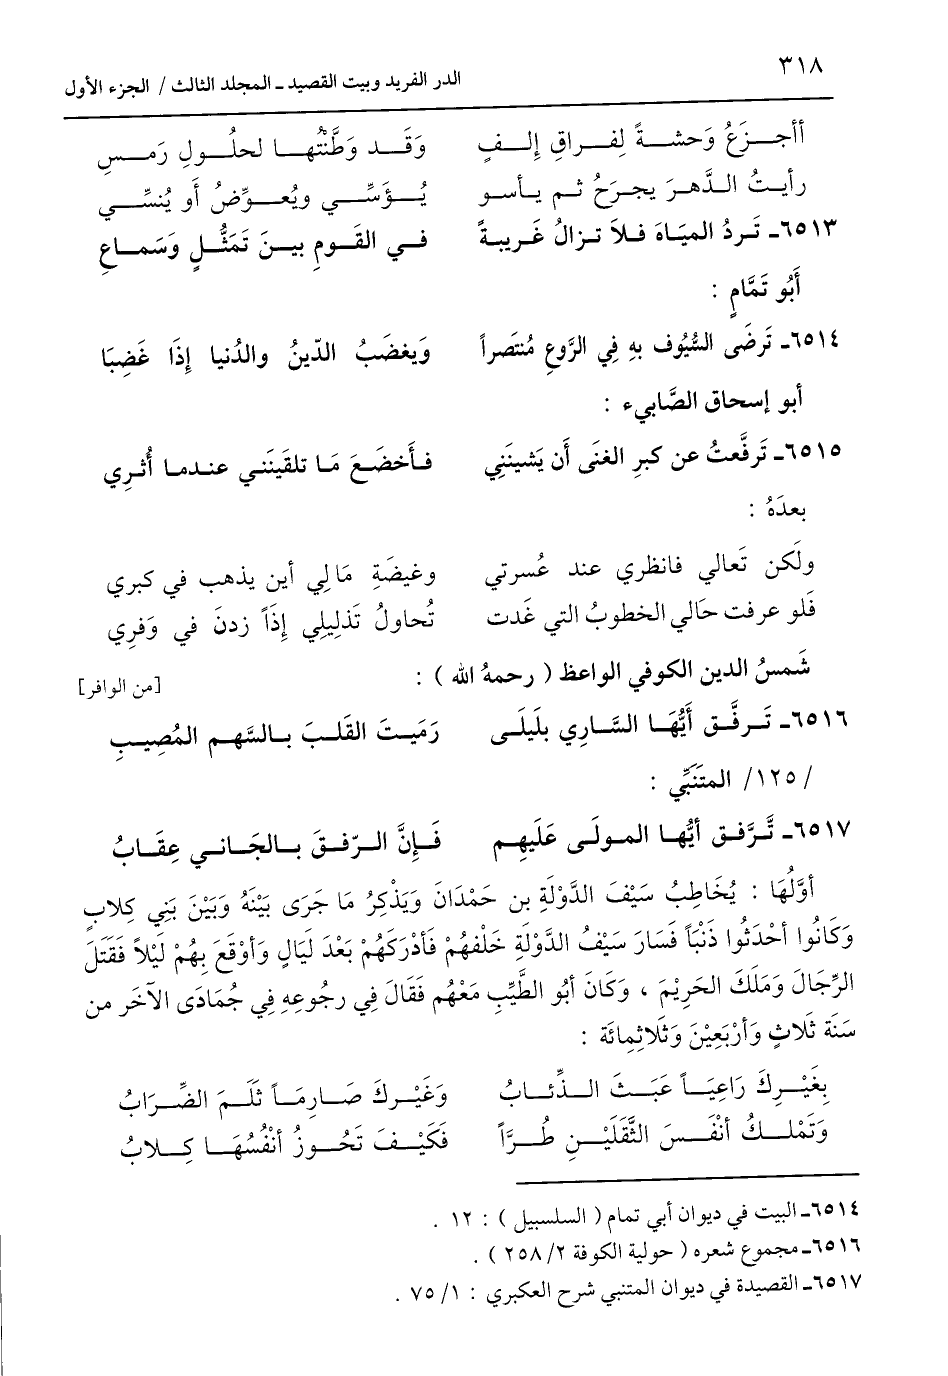 ٣١٨
الدر الفريد وبيت القصيد ـ المجلد الثالث / الجزء الأول
أأجـزَعُ وَحشـةً لِفـراقِ إلـفٍ وَقَـد وَطَّنْتُهـا لحلُـولِ رَمـسِ
رأيـتُ الـدَّهـرَ يجرَحُ ثـم يـأسـو يُـؤَسِّـي ويُعـوِّضُ أَو يُنسِّـي
٦٥١٣ـ تَـردُ الميَـاهَ فـلاَ تـزالُ غَـريبـةً فـي القَـومِ بيـنَ تَمَثُّـلٍ وَسَمـاعِ
أَبُو تَمَّامٍ :
٦٥١٤ـ تَرضَى السُّيُوف بهِ فِي الرَّوعِ مُنتَصراً وَيغضَبُ الدّينُ والدُنيا إذَا غَضِبَا
أبو إسحاق الصَّابيء :
٦٥١٥ـ تَرفَّعتُ عن كبرِ الغنَى أَن يَشينَنِي فـأَخضَـعَ مَـا تلقَينَنـي عنـدمـا أُثـرِي
بعدَهُ :
ولَكن تَعالي فانظري عند عُسرتي وغيضَةِ مَالِي أين يذهب في كبري
فَلو عرفت حَالي الخطوبُ التي غَدت تُحاولُ تَذلِيلِي إذَاً زدنَ في وَفرِي
شَمسُ الدين الكوفي الواعظ ( رحمهُ الله ) : [من الوافر]
٦٥١٦ـ تَـرفَّـق أَيُّهَـا السَّـاري بلَيلَـى رَمَيـتَ القَلـبَ بـالسَّهـمِ المُصِيـبِ
/ ١٢٥/ المتَنَبِّي :
٦٥١٧ـ تَّرَّفق أيُّهـا المـولَـى عَلَيهِـم فَـإنَّ الـرّفـقَ بـالجَـانـي عِقَـابُ
أوَّلُهَا : يُخَاطِبُ سَيْفَ الدَّوْلَةِ بن حَمْدَانَ وَيَذْكِرُ مَا جَرَى بَيْنَهُ وَبَيْنَ بَنِي كِلابٍ
وَكَانُوا أحْدَثُوا ذَنْبَاً فَسَارَ سَيْفُ الدَّوْلَةِ خَلْفَهُمْ فَأدْرَكَهُمْ بَعْدَ لَيَالٍ وَأوْقَعَ بِهُمْ لَيْلاً فَقَتَلَ
الرِّجَالَ وَمَلَكَ الحَرِيْمَ ، وَكَانَ أبُو الطَّيِّبِ مَعْهُم فَقَالَ فِي رجُوعِهِ فِي جُمَادَى الآخَر من
سَنَة ثَلَاثٍ وَأرْبَعِيْنَ وَثَلاثِمائَة :
بِغَيْـرِكَ رَاعِيَـاً عَبَـثَ الـذِّئـابُ وَغَيْـركَ صَـارِمَـاً ثَلَـمَ الضِّـرَابُ
وَتَمْلـكُ أنْفَـسَ الثَّقَلَيْـنِ طُـرَّاً فَكَيْـفَ تَحُـوزُ أنْفُسُهَـا كِـلابُ
٦٥١٤ـ البيت في ديوان أبي تمام ( السلسبيل ) : ١٢ .
٦٥١٦ـ مجموع شعره ( حولية الكوفة ٢/ ٢٥٨ ) .
٦٥١٧ـ القصيدة في ديوان المتنبي شرح العكبري : ١/ ٧٥ .